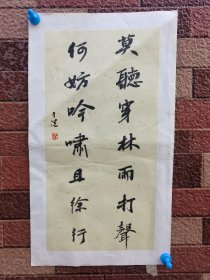 莫聽穿林雨打聲
何妨吟嘯且徐行